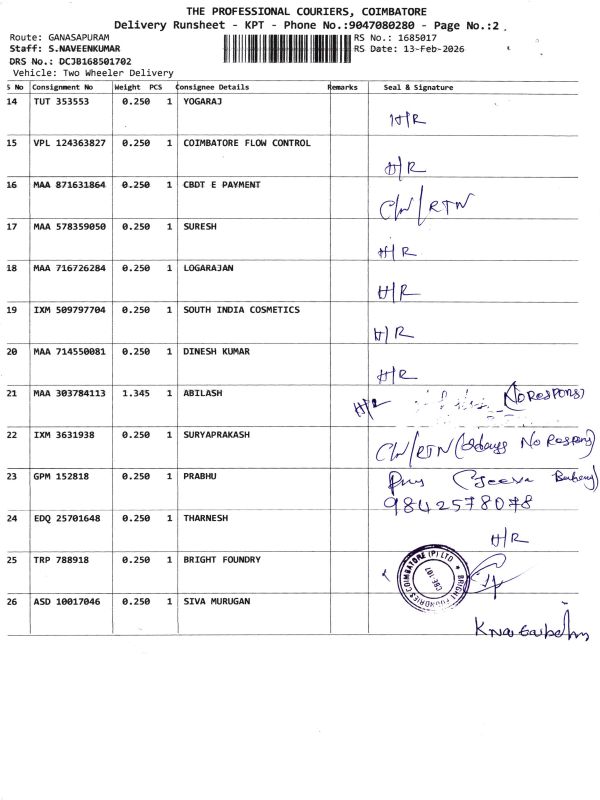 THE PROFESSIONAL COURIERS, COIMBATORE
Delivery Runsheet - KPT - Phone No.:9047080280 - Page No.:2
Route: GANASAPURAM RS No.: 1685017
Staff: S.NAVEENKUMAR RS Date: 13-Feb-2026
DRS No.: DCJB168501702
Vehicle: Two Wheeler Delivery
S No Consignment No Weight PCS Consignee Details Remarks Seal & Signature
14 TUT 353553 0.250 1 YOGARAJ
H/R
15 VPL 124363827 0.250 1 COIMBATORE FLOW CONTROL
H/R
16 MAA 871631864 0.250 1 CBDT E PAYMENT
C/W/RTN
17 MAA 578359050 0.250 1 SURESH
H/R
18 MAA 716726284 0.250 1 LOGARAJAN
H/R
19 IXM 509797704 0.250 1 SOUTH INDIA COSMETICS
H/R
20 MAA 714550081 0.250 1 DINESH KUMAR
H/R
21 MAA 303784113 1.345 1 ABILASH
H/R (No Respons)
22 IXM 3631938 0.250 1 SURYAPRAKASH
C/W/RTN (days No Respons)
23 GPM 152818 0.250 1 PRABHU
(Jeeva
9842578078
24 EDQ 25701648 0.250 1 THARNESH
H/R
25 TRP 788918 0.250 1 BRIGHT FOUNDRY
BRIGHT FOUNDRIES COIMBATORE (P) LTD
CBE-107
26 ASD 10017046 0.250 1 SIVA MURUGAN